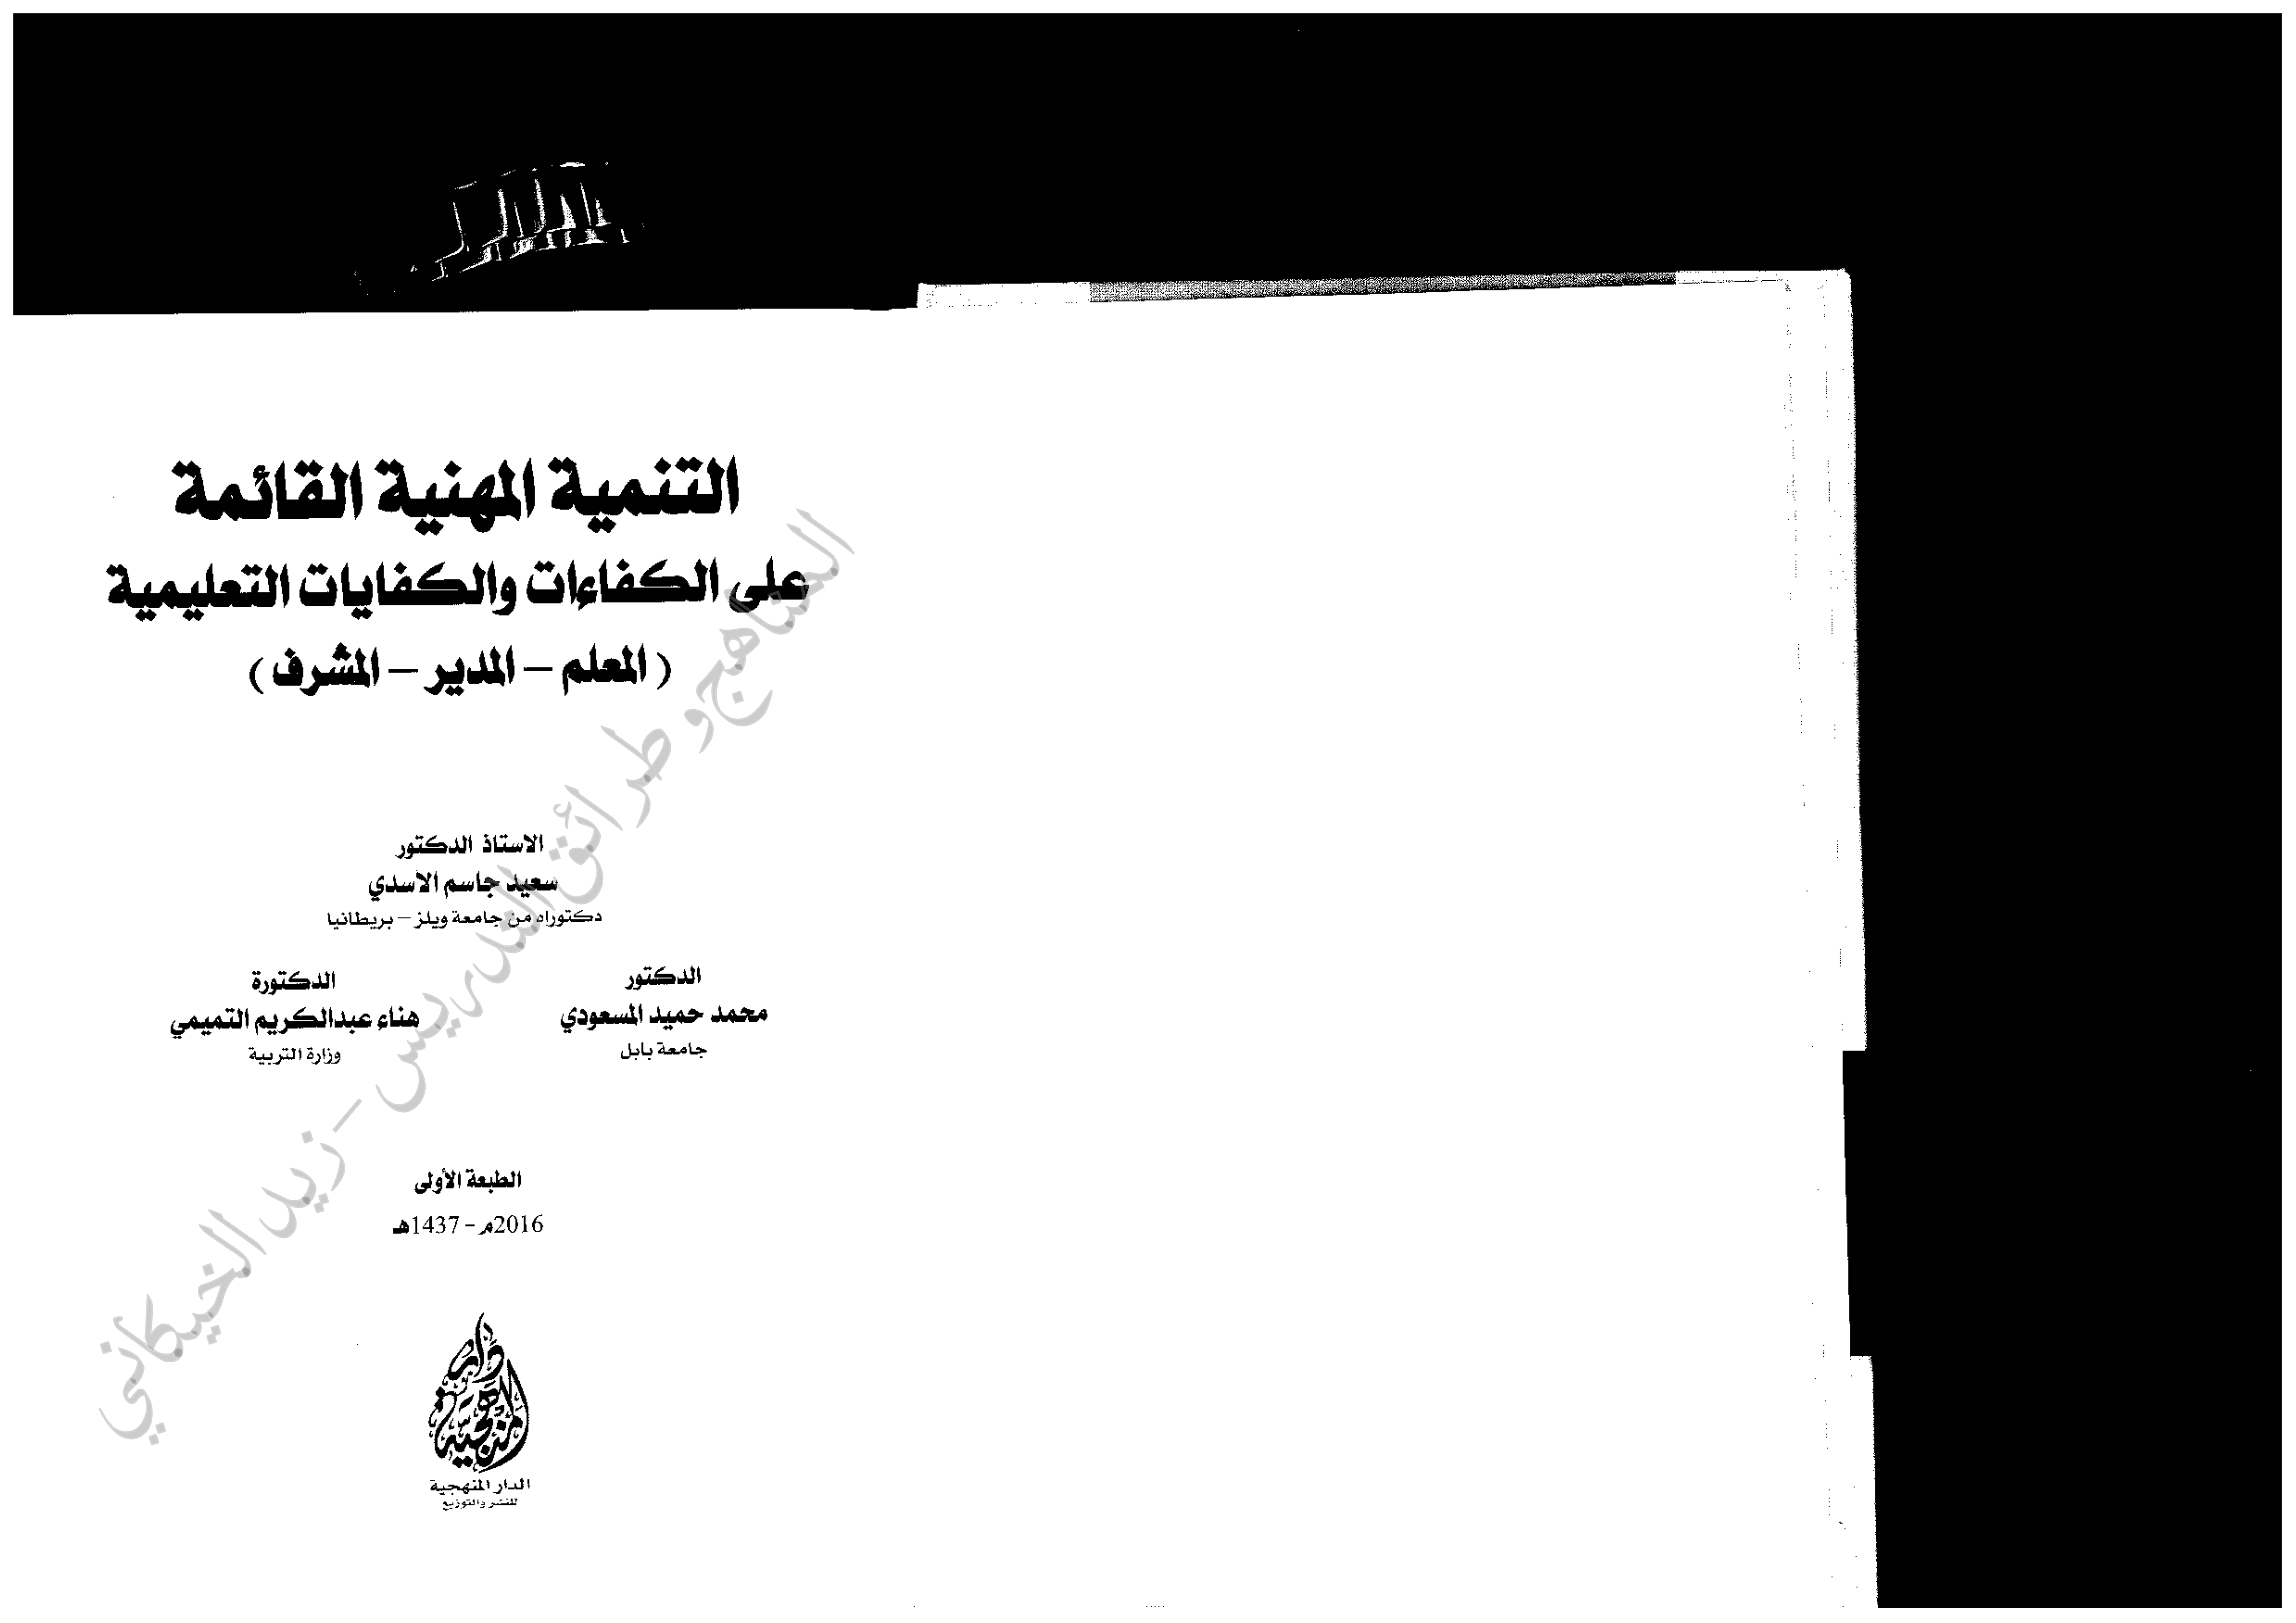 التنمية المهنية القائمة
على الكفاءات والكفايات التعليمية
( المعلم – المدير – المشرف )
الاستاذ الدكتور
سعيد جاسم الاسدي
دكتوراه من جامعة ويلز – بريطانيا
الدكتور
محمد حميد المسعودي
جامعة بابل
الدكتورة
هناء عبدالكريم التميمي
وزارة التربية
الطبعة الأولى
2016م - 1437هـ
دار المنهجية
الدار المنهجية
للنشر والتوزيع
المناهج و طرائق التدريس - زيد الخيكاني